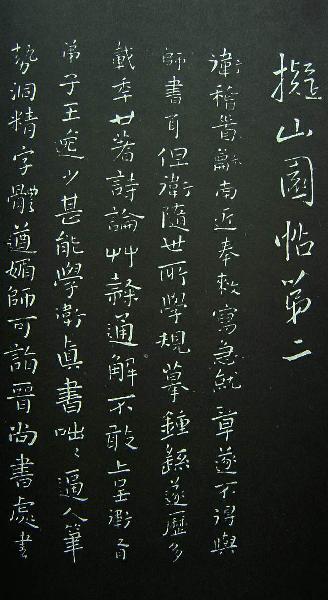 擬山園帖第二
衛稽首龢南近奉敕寫急就章遂不得與
師書耳但衛隨世所學規摹鍾繇遂歷多
載秊廿著詩論艸隸通解不敢上呈衛有
弟子王逸少甚能學衛眞書咄〻逼人筆
勢洞精字體遒媚師可詣晉尚書處書